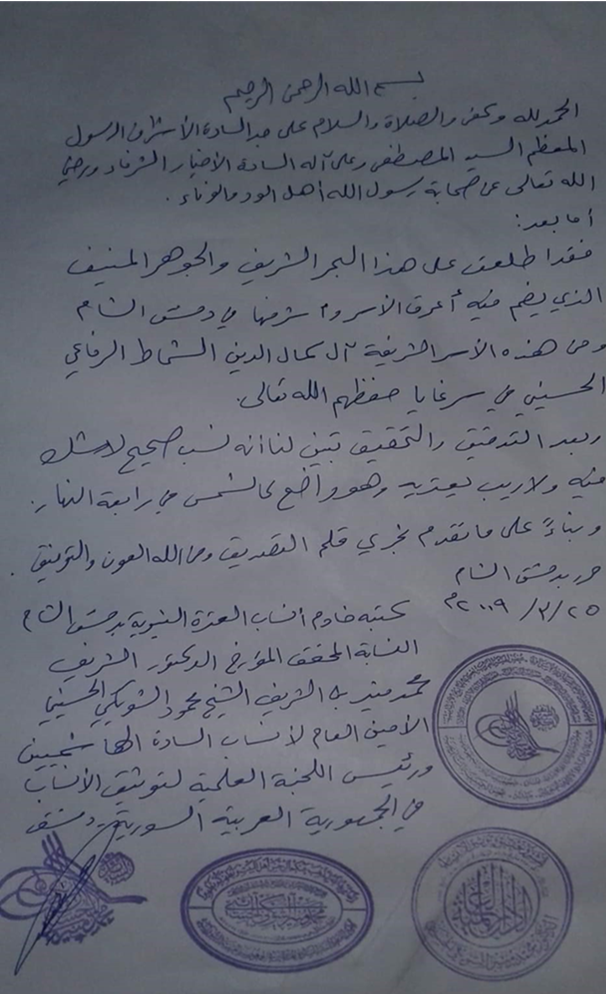 بسم الله الرحمن الرحيم
الحمد لله وكفى والصلاة والسلام على جد السادة الأشراف الرسول
المعظم السيد المصطفى وعلى آله السادة الأخيار الشرفاء ورضي
الله تعالى عن صحابة رسول الله أهل الود والوفاء .
أما بعد:
فقد اطلعت على هذا البحر الشريف والجوهر المنيف
الذي يضم فيه أعرق الأسر وأشرفها في دمشق الشام
ومن هذه الأسر الشريفة آل كمال الدين الشماط الرفاعي
الحسيني في سرغايا حفظهم الله تعالى.
وبعد التدقيق والتحقيق تبين لنا أنه نسب صحيح لا شك
فيه ولا ريب يعتريه وهو واضح كالشمس في رابعة النهار.
وبناءً على ما تقدم نجري قلم التصديق ومن الله العون والتوفيق .
حرر بدمشق الشام
٢٥/٣/٢٠٠٩م
كتبه خادم أنساب العترة النبوية بدمشق الشام
النسابة المحقق المؤرخ الدكتور الشريف
محمد منير بن الشريف الشيخ محمود الشويكي الحسيني
الأمين العام لأنساب السادة الهاشميين
ورئيس اللجنة العلمية لتوثيق الأنساب
في الجمهورية العربية السورية - دمشق